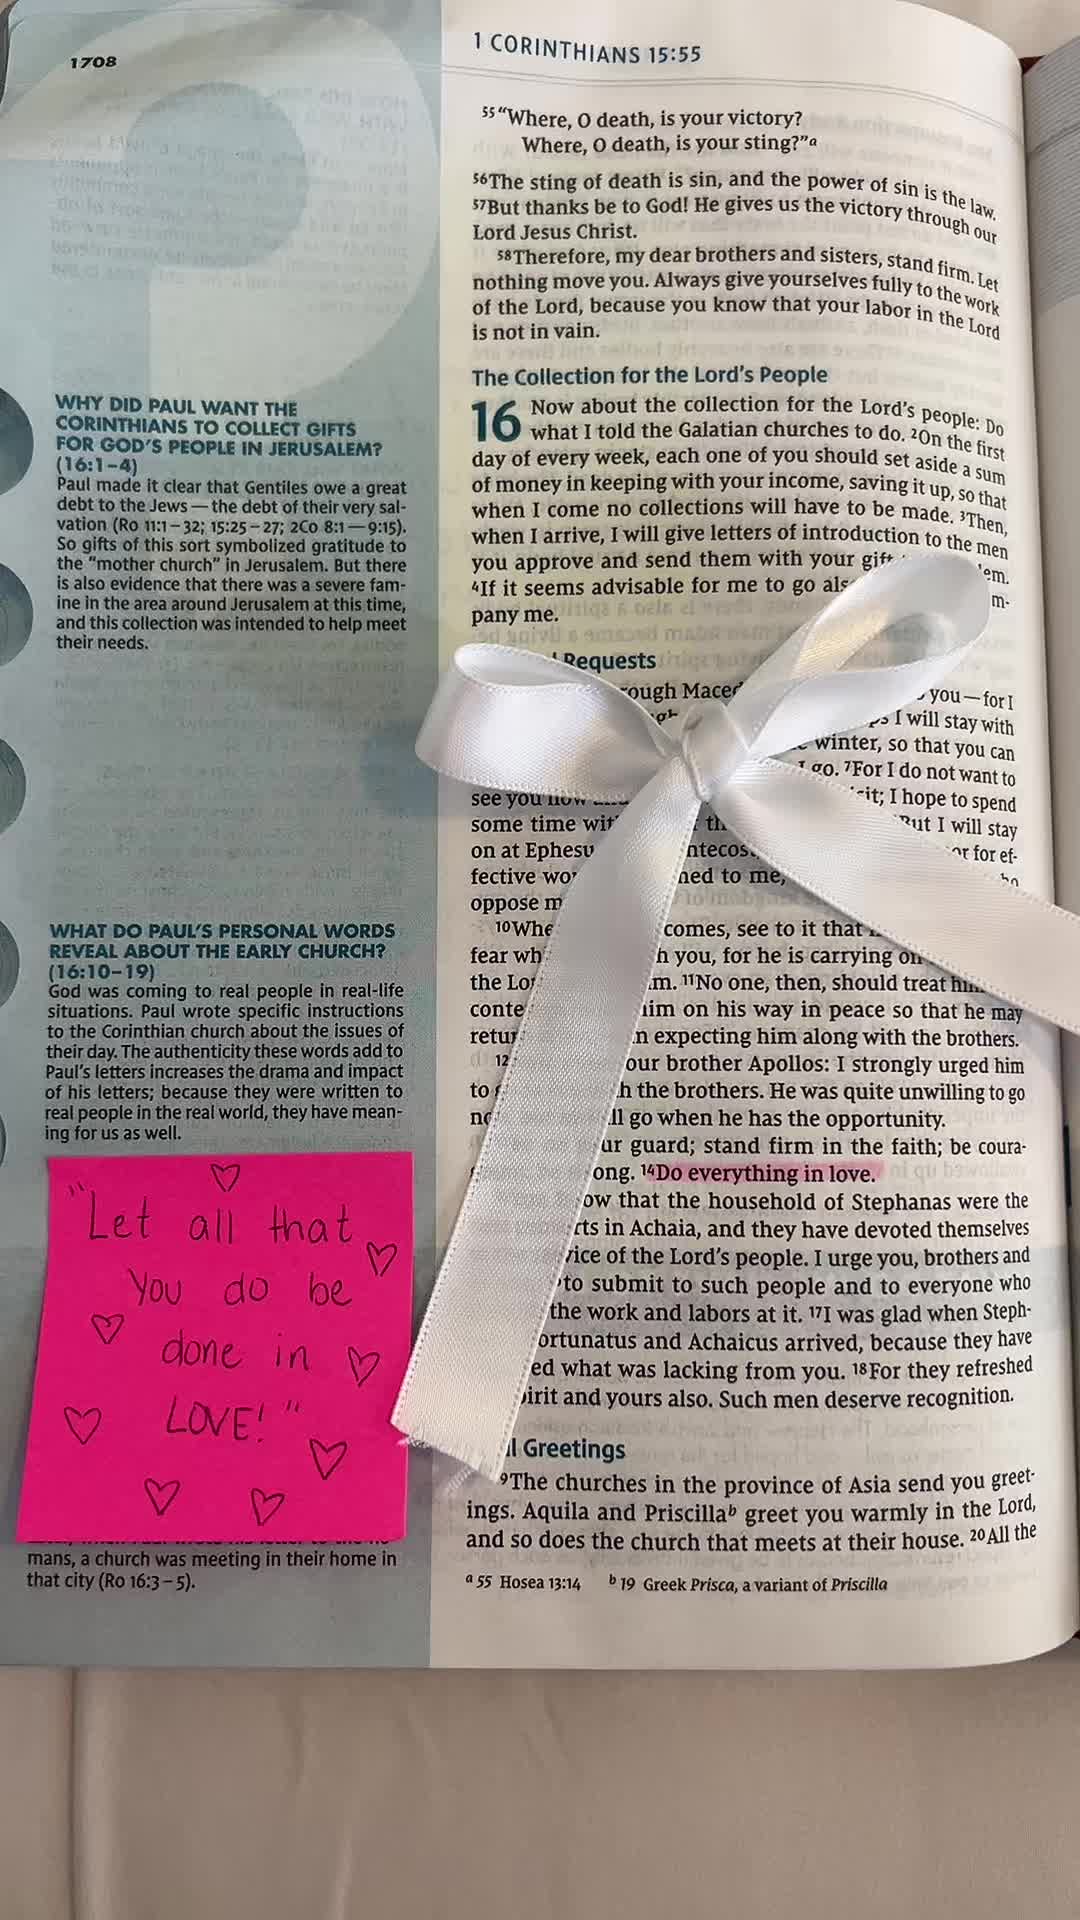 1708
1 CORINTHIANS 15:55
WHY DID PAUL WANT THE
CORINTHIANS TO COLLECT GIFTS
FOR GOD'S PEOPLE IN JERUSALEM?
(16:1–4)
Paul made it clear that Gentiles owe a great
debt to the Jews — the debt of their very sal-
vation (Ro 11:1–32; 15:25–27; 2Co 8:1—9:15).
So gifts of this sort symbolized gratitude to
the "mother church" in Jerusalem. But there
is also evidence that there was a severe fam-
ine in the area around Jerusalem at this time,
and this collection was intended to help meet
their needs.
WHAT DO PAUL'S PERSONAL WORDS
REVEAL ABOUT THE EARLY CHURCH?
(16:10–19)
God was coming to real people in real-life
situations. Paul wrote specific instructions
to the Corinthian church about the issues of
their day. The authenticity these words add to
Paul's letters increases the drama and impact
of his letters; because they were written to
real people in the real world, they have mean-
ing for us as well.
"Let all that
you do be
done in
LOVE!"
mans, a church was meeting in their home in
that city (Ro 16:3–5).
55 "Where, O death, is your victory?
Where, O death, is your sting?"a
56The sting of death is sin, and the power of sin is the law.
57But thanks be to God! He gives us the victory through our
Lord Jesus Christ.
58Therefore, my dear brothers and sisters, stand firm. Let
nothing move you. Always give yourselves fully to the work
of the Lord, because you know that your labor in the Lord
is not in vain.
The Collection for the Lord's People
16 Now about the collection for the Lord's people: Do
what I told the Galatian churches to do. 2On the first
day of every week, each one of you should set aside a sum
of money in keeping with your income, saving it up, so that
when I come no collections will have to be made. 3Then,
when I arrive, I will give letters of introduction to the men
you approve and send them with your gift
4If it seems advisable for me to go
pany me.
Requests
you—for I
I will stay with
winter, so that you can
I go. 7For I do not want to
see you now it; I hope to spend
some time But I will stay
on at for ef-
fective ned to me,
oppose
10 comes, see to it that
fear h you, for he is carrying on
the m. 11No one, then, should treat him
conte him on his way in peace so that he may
retur n expecting him along with the brothers.
12 our brother Apollos: I strongly urged him
to h the brothers. He was quite unwilling to go
ll go when he has the opportunity.
ur guard; stand firm in the faith; be coura-
ong. 14Do everything in love.
ow that the household of Stephanas were the
rts in Achaia, and they have devoted themselves
vice of the Lord's people. I urge you, brothers and
to submit to such people and to everyone who
the work and labors at it. 17I was glad when Steph-
ortunatus and Achaicus arrived, because they have
ed what was lacking from you. 18For they refreshed
irit and yours also. Such men deserve recognition.
Greetings
The churches in the province of Asia send you greet-
ings. Aquila and Priscillab greet you warmly in the Lord,
and so does the church that meets at their house. 20All the
a 55 Hosea 13:14 b 19 Greek Prisca, a variant of Priscilla